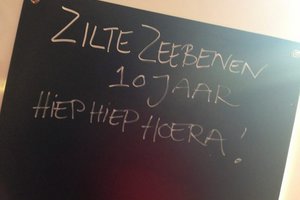 ZILTE ZEEBENEN
10 JAAR
HIEP HIEP HOERA!